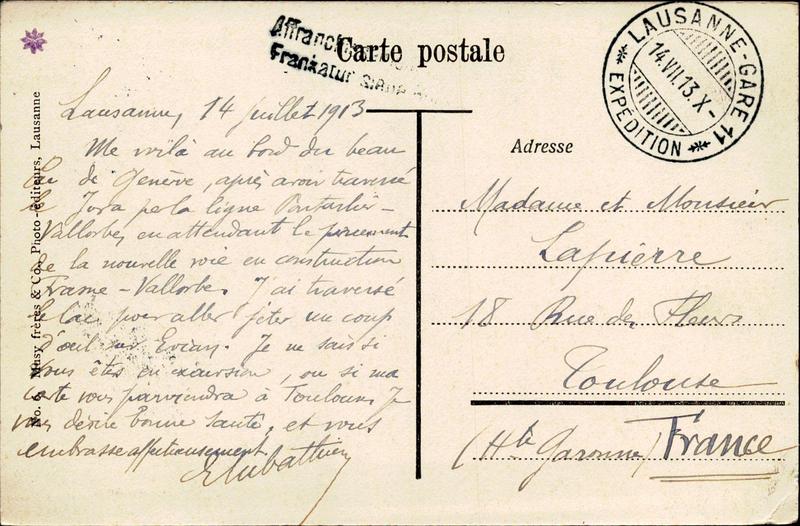 Carte postale
Affranch
Frankatur siehe
LAUSANNE-GARE 11
14.VII.13.X-
EXPÉDITION
No. Musy frères & Co., Photo-éditeurs, Lausanne
Lausanne, 14 juillet 1913
Me voilà au bord du beau
lac de Genève, après avoir traversé
le Jura par la ligne Pontarlier-
Vallorbe, en attendant le percement
de la nouvelle voie en construction
Frasne-Vallorbe. J'ai traversé
le lac pour aller jeter un coup
d'oeil sur Evian. Je ne sais si
vous êtes en excursion, ou si ma
carte vous parviendra à Toulouse. Je
vous désire bonne santé, et vous
embrasse affectueusement
Adresse
Madame et Monsieur
Lapierre
18 Rue des Fleurs
Toulouse
(Hte Garonne) France